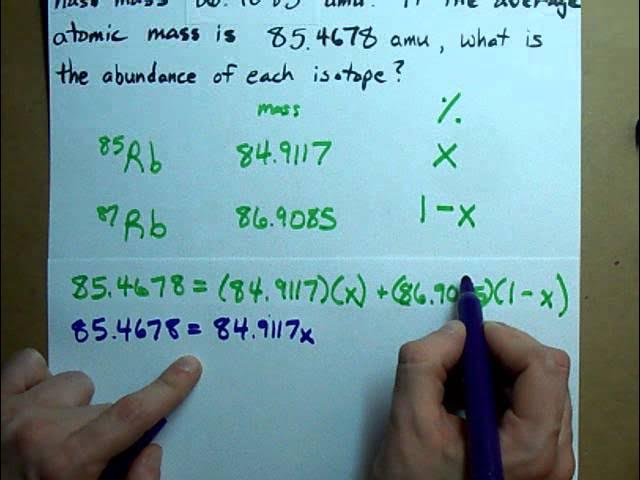 atomic mass is 85.4678 amu, what is
the abundance of each isotope?
mass %
85Rb 84.9117 X
87Rb 86.9085 1-x
85.4678 = (84.9117)(x) + (86.9085)(1-x)
85.4678 = 84.9117x